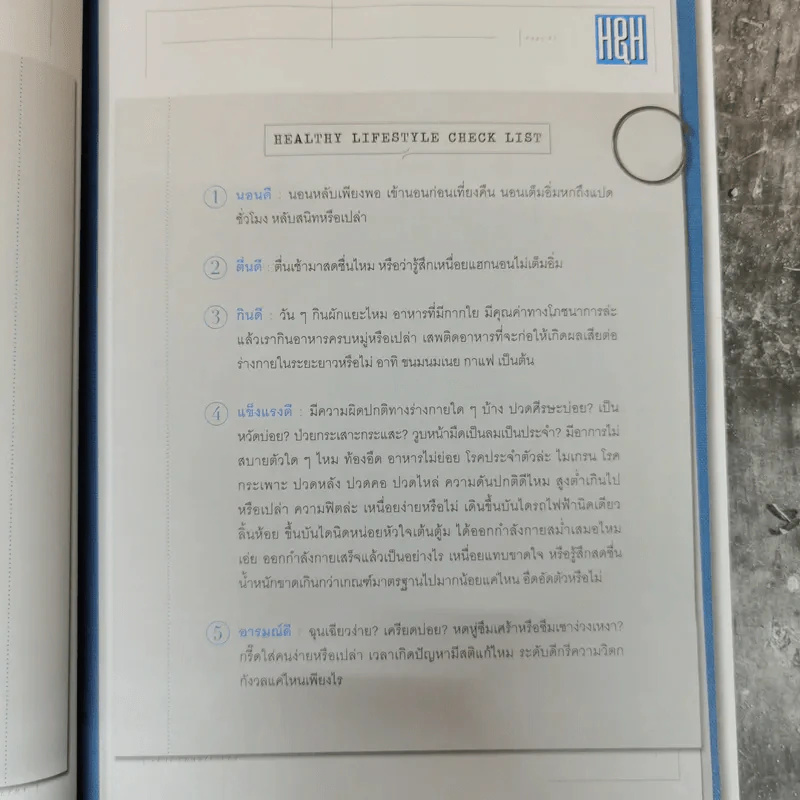 H&H
HEALTHY LIFESTYLE CHECK LIST
1 นอนดี : นอนหลับเพียงพอ เข้านอนก่อนเที่ยงคืน นอนเต็มอิ่มหกถึงแปด
ชั่วโมง หลับสนิทหรือเปล่า
2 ตื่นดี : ตื่นเช้ามาสดชื่นไหม หรือว่ารู้สึกเหนื่อยแฮกนอนไม่เต็มอิ่ม
3 กินดี : วัน ๆ กินผักแยะไหม อาหารที่มีกากใย มีคุณค่าทางโภชนาการล่ะ
แล้วเรากินอาหารครบหมู่หรือเปล่า เสพติดอาหารที่จะก่อให้เกิดผลเสียต่อ
ร่างกายในระยะยาวหรือไม่ อาทิ ขนมนมเนย กาแฟ เป็นต้น
4 แข็งแรงดี : มีความผิดปกติทางร่างกายใด ๆ บ้าง ปวดศีรษะบ่อย? เป็น
หวัดบ่อย? ป่วยกระเสาะกระแสะ? วูบหน้ามืดเป็นลมเป็นประจำ? มีอาการไม่
สบายตัวใด ๆ ไหม ท้องอืด อาหารไม่ย่อย โรคประจำตัวล่ะ ไมเกรน โรค
กระเพาะ ปวดหลัง ปวดคอ ปวดไหล่ ความดันปกติดีไหม สูงต่ำเกินไป
หรือเปล่า ความฟิตล่ะ เหนื่อยง่ายหรือไม่ เดินขึ้นบันไดรถไฟฟ้านิดเดียว
ลิ้นห้อย ขึ้นบันไดนิดหน่อยหัวใจเต้นตู้ม ได้ออกกำลังกายสม่ำเสมอไหม
เอ่ย ออกกำลังกายเสร็จแล้วเป็นอย่างไร เหนื่อยแทบขาดใจ หรือรู้สึกสดชื่น
น้ำหนักขาดเกินกว่าเกณฑ์มาตรฐานไปมากน้อยแค่ไหน อึดอัดตัวหรือไม่
5 อารมณ์ดี : ฉุนเฉียวง่าย? เครียดบ่อย? หดหู่ซึมเศร้าหรือซึมเซาง่วงเหงา?
กรี๊ดใส่คนง่ายหรือเปล่า เวลาเกิดปัญหามีสติแก้ไหม ระดับดีกรีความวิตก
กังวลแค่ไหนเพียงไร